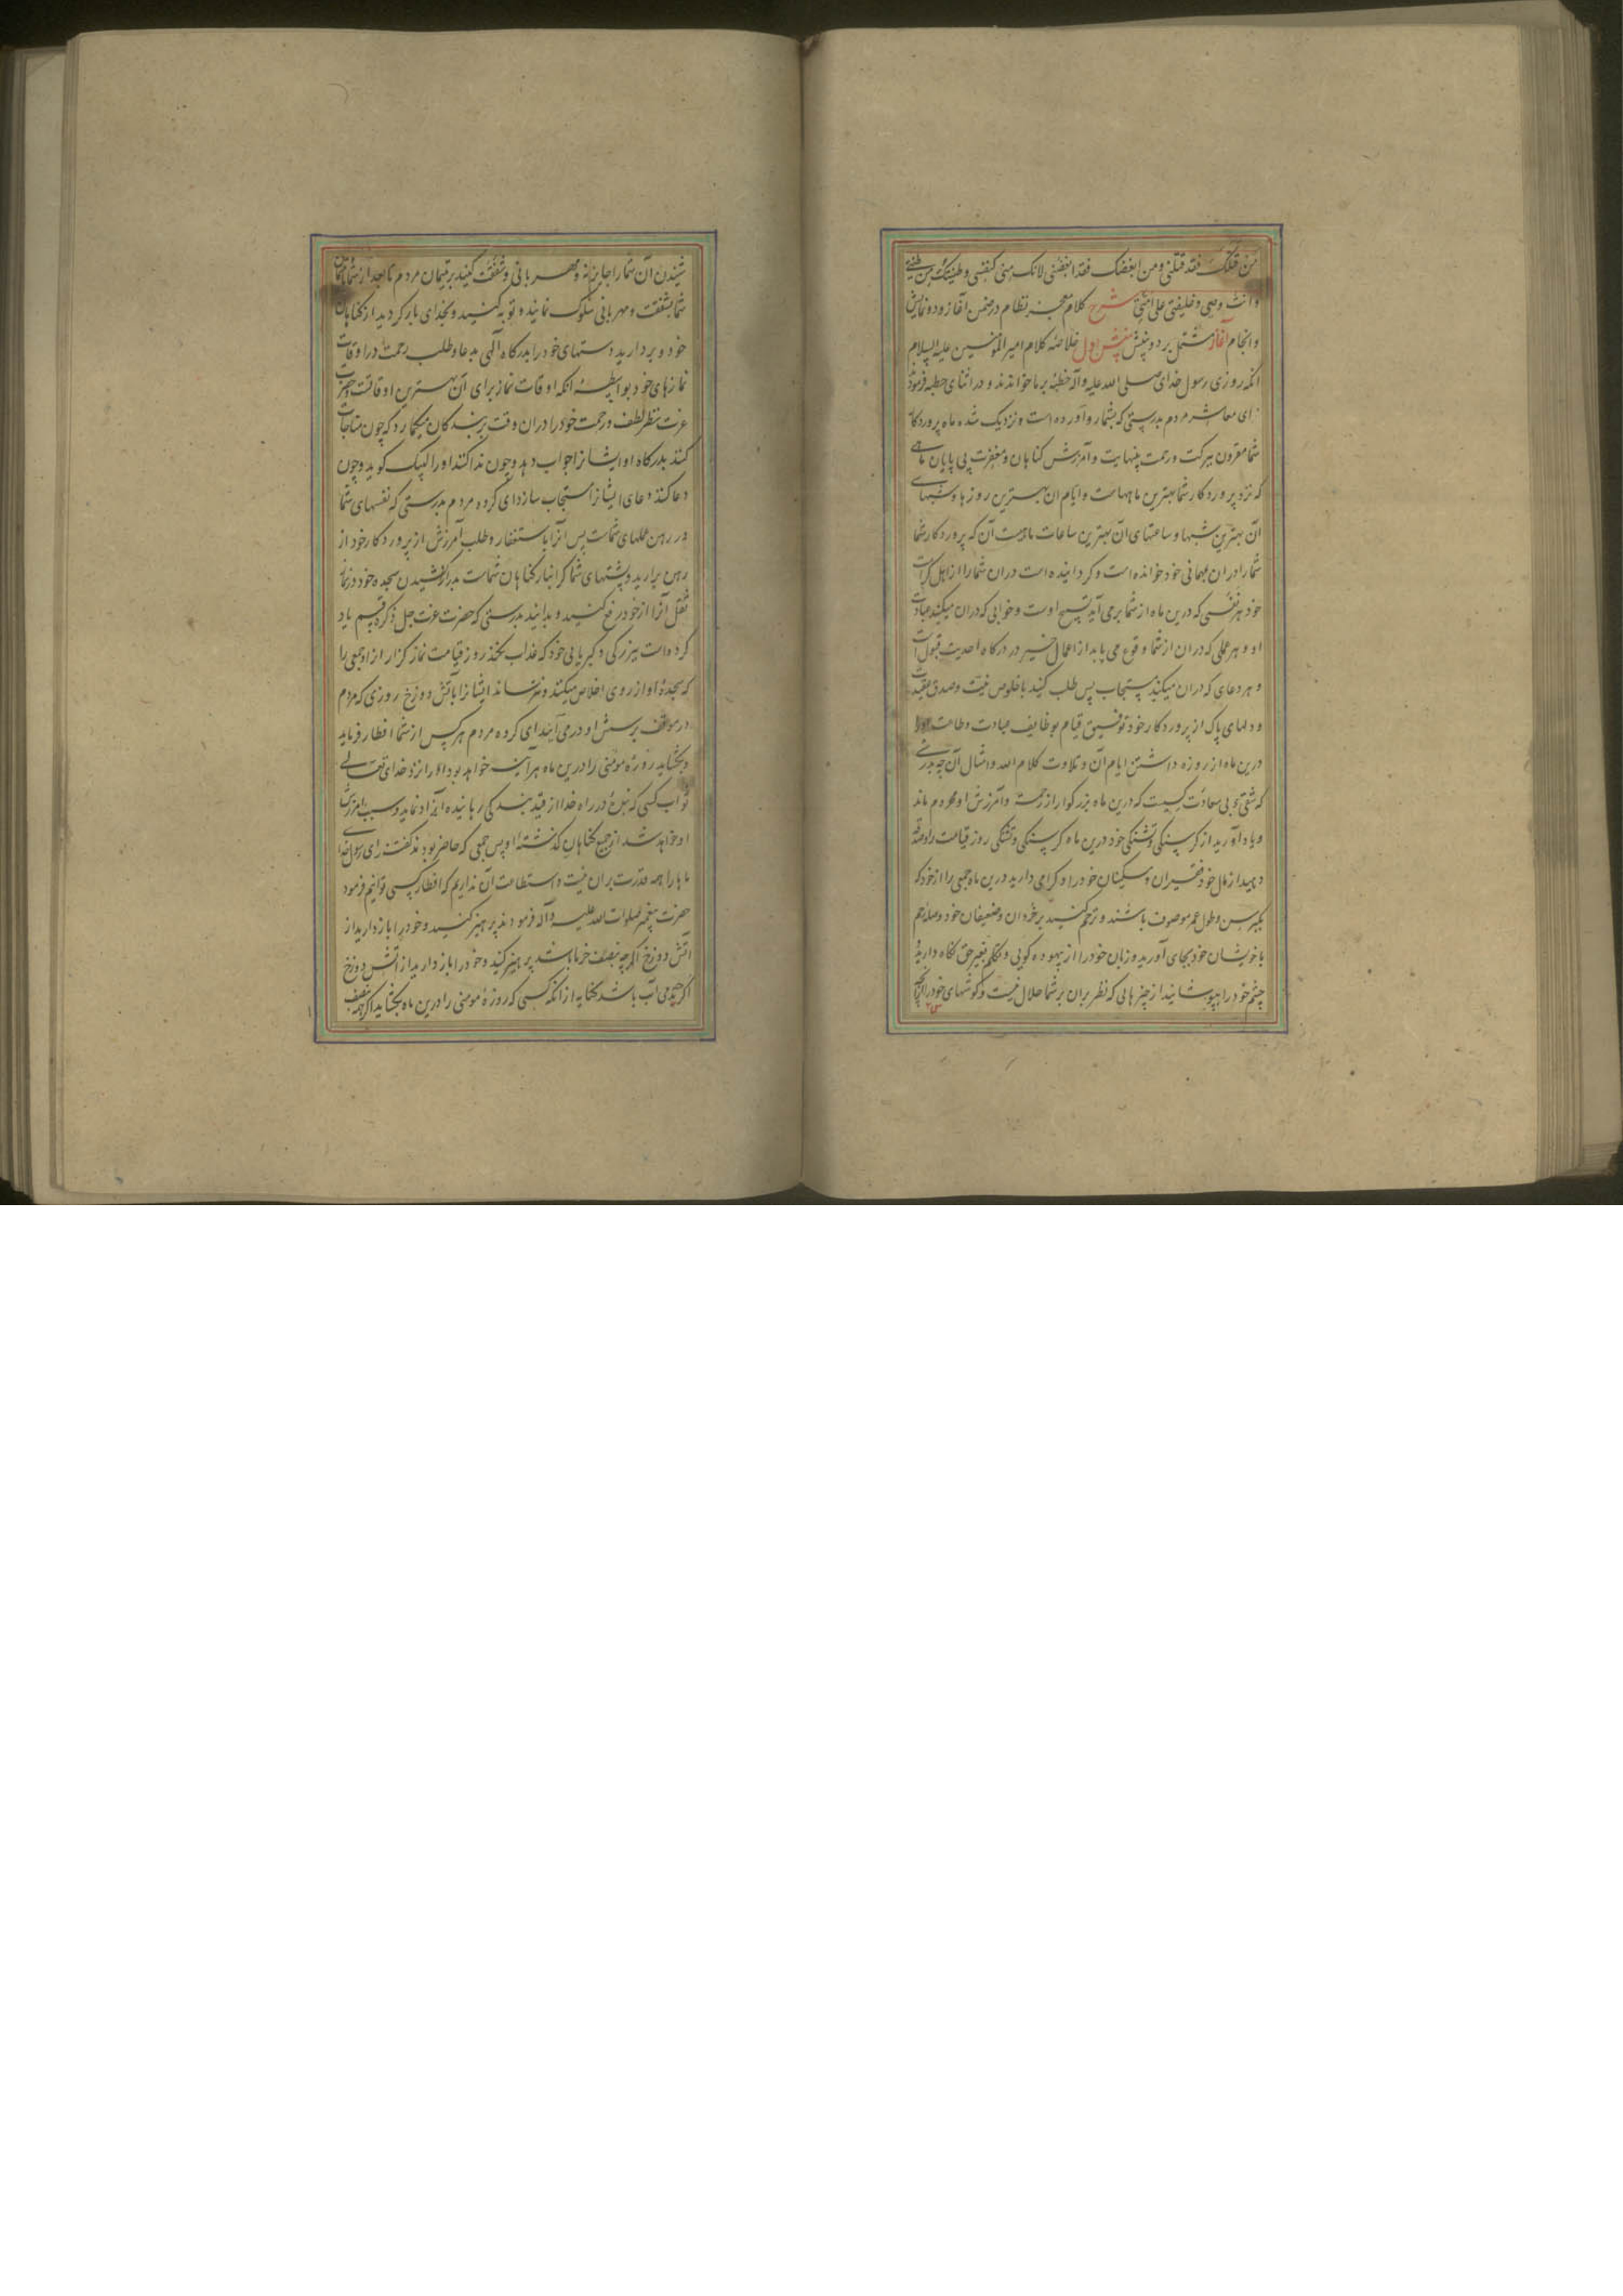 من قتلک فقد قتلنی و من ابغضک فقد ابغضنی لانک منی کنفسی و طینتک من طینتی
و انت وصیی و خلیفتی علی امتی شرح کلام معجز نظام در ضمن آغاز و دو نمایش
و انجام آغاز مشتمل بر دو بینش بینش اول خلاصه کلام امیر المومنین علیه السلام
انکه روزی رسول خدای صلی الله علیه و آله خطبه بر ما خواندند و در اثنای خطبه فرمود
ای معاشر مردم بدرستی که بشما رو آورده است و نزدیک شده ماه پروردکار
شما مقرون ببرکت و رحمت بینهایت و آمرزش کناهان و مغفرت بی پایان ماهی
که نزد پروردکار شما بهترین ماههاست و ایام آن بهترین روزها و شبهای
آن بهترین شبها و ساعتهای آن بهترین ساعات ماهیست آن که پروردکار شما
شما را در ان مهمانی خود خوانده است و کردانیده است در ان شما را از اهل کرامت
خود هر نفسی که درین ماه از شما برمی آید تسبیح اوست و خوابی که در ان میکنید عبادت
او و هر عملی که در ان از شما وقوع می یابد از اعمال خیر در درکاه احدیت قبول است
و هر دعای که در ان میکنید مستجاب پس طلب کنید باخلوص نیت و صدق عقیدت
و دلهای پاک از پروردکار خود توفیق قیام بوظایف عبادت و طاعت او را
درین ماه از روزه داشتن ایام آن و تلاوت کلام الله و امثال آن چه بدرستی
که شقی و بی سعادت کسیست که درین ماه بزرکوار از رحمت و آمرزش او محروم ماند
و یاد آورید از کرسنکی و تشنکی خود درین ماه کرسنکی و تشنکی روز قیامت را و صدقه
دهید از مال خود فقیران و مسکینان خود را و کرامی دارید درین ماه جمعی را از خود که
بکبر سن و طول عمر موصوف باشند و ترحم کنید بر خردان و ضعیفان خود و صله رحم
با خویشان خود بجای آورید و زبان خود را از بیهوده کویی و تکلم بغیر حق نکاه دارید و
چشم خود را بپوشانید از چیزهایی که نظر بران بر شما حلال نیست و کوشهای خود را از آنچه
شنیدن آن شما را جایز نه و مهربانی و شفقت کنید بر یتیمان مردم تا بعد از شما با یتیمان
شما بشفقت و مهربانی سلوک نمایند و توبه کنید و بخدای باز کردید از کناهان
خود و بردارید دستهای خود را بدرکاه الهی بدعا و طلب رحمت در اوقات
نمازهای خود بواسطه انکه اوقات نماز برای آن بهترین اوقاتست و حضرت
عزت نظر لطف و رحمت خود را در ان وقت بر بندکان میکمارد که چون مناجات
کنند بدرکاه او ایشانرا جواب دهد و چون ندا کنند او را لبیک کوید و چون
دعا کنند دعای ایشانرا مستجاب سازد ای کروه مردم بدرستی که نفسهای شما
در رهن عملهای شماست پس آنرا باستغفار و طلب آمرزش از پروردکار خود از
رهن برارید و پشتهای شما کرانبار کناهان شماست بدراز کشیدن سجده خود در نماز
ثقل آنرا از خود رفع کنید و بدانید بدرستی که حضرت عزت جل ذکره قسم یاد
کرده است ببزرکی و کبریایی خود که عذاب نکند روز قیامت نماز کزار از او جمعی را
که سجده او از روی اخلاص میکنند و نترساند ایشانرا بآتش دوزخ روزی که مردم
در موقف پرسش او درمی آیند ای کروه مردم هر کس از شما افطار فرماید
و بخشاید روزه مومنی را درین ماه هر آینه خواهد بود او را نزد خدای تعالی
ثواب کسی که بنده در راه خدا از قید بندکی رهانیده آزاد نماید و سبب آمرزش
او خواهد شد از جمیع کناهان کذشته او پس جمعی که حاضر بودند کفتند ای رسول خدا
ما را همه قدرت بران نیست و استطاعت آن نداریم که افطار کسی توانیم فرمود
حضرت پیغمبر صلوات الله علیه و آله فرمودند پرهیز کنید و خود را باز دارید از
آتش دوزخ اکرچه بنصف خرما باشد پرهیز کنید و خود را باز دارید از آتش دوزخ
اکرچه بدمی آب باشد کنایه از انکه کسی که روزه مومنی را درین ماه بخشاید اکرچه بنصف